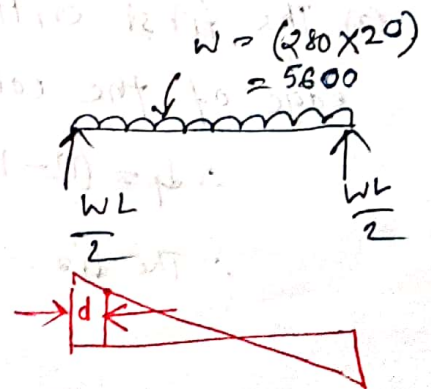 W = (280×20)
= 5600
WL
2
WL
2
d